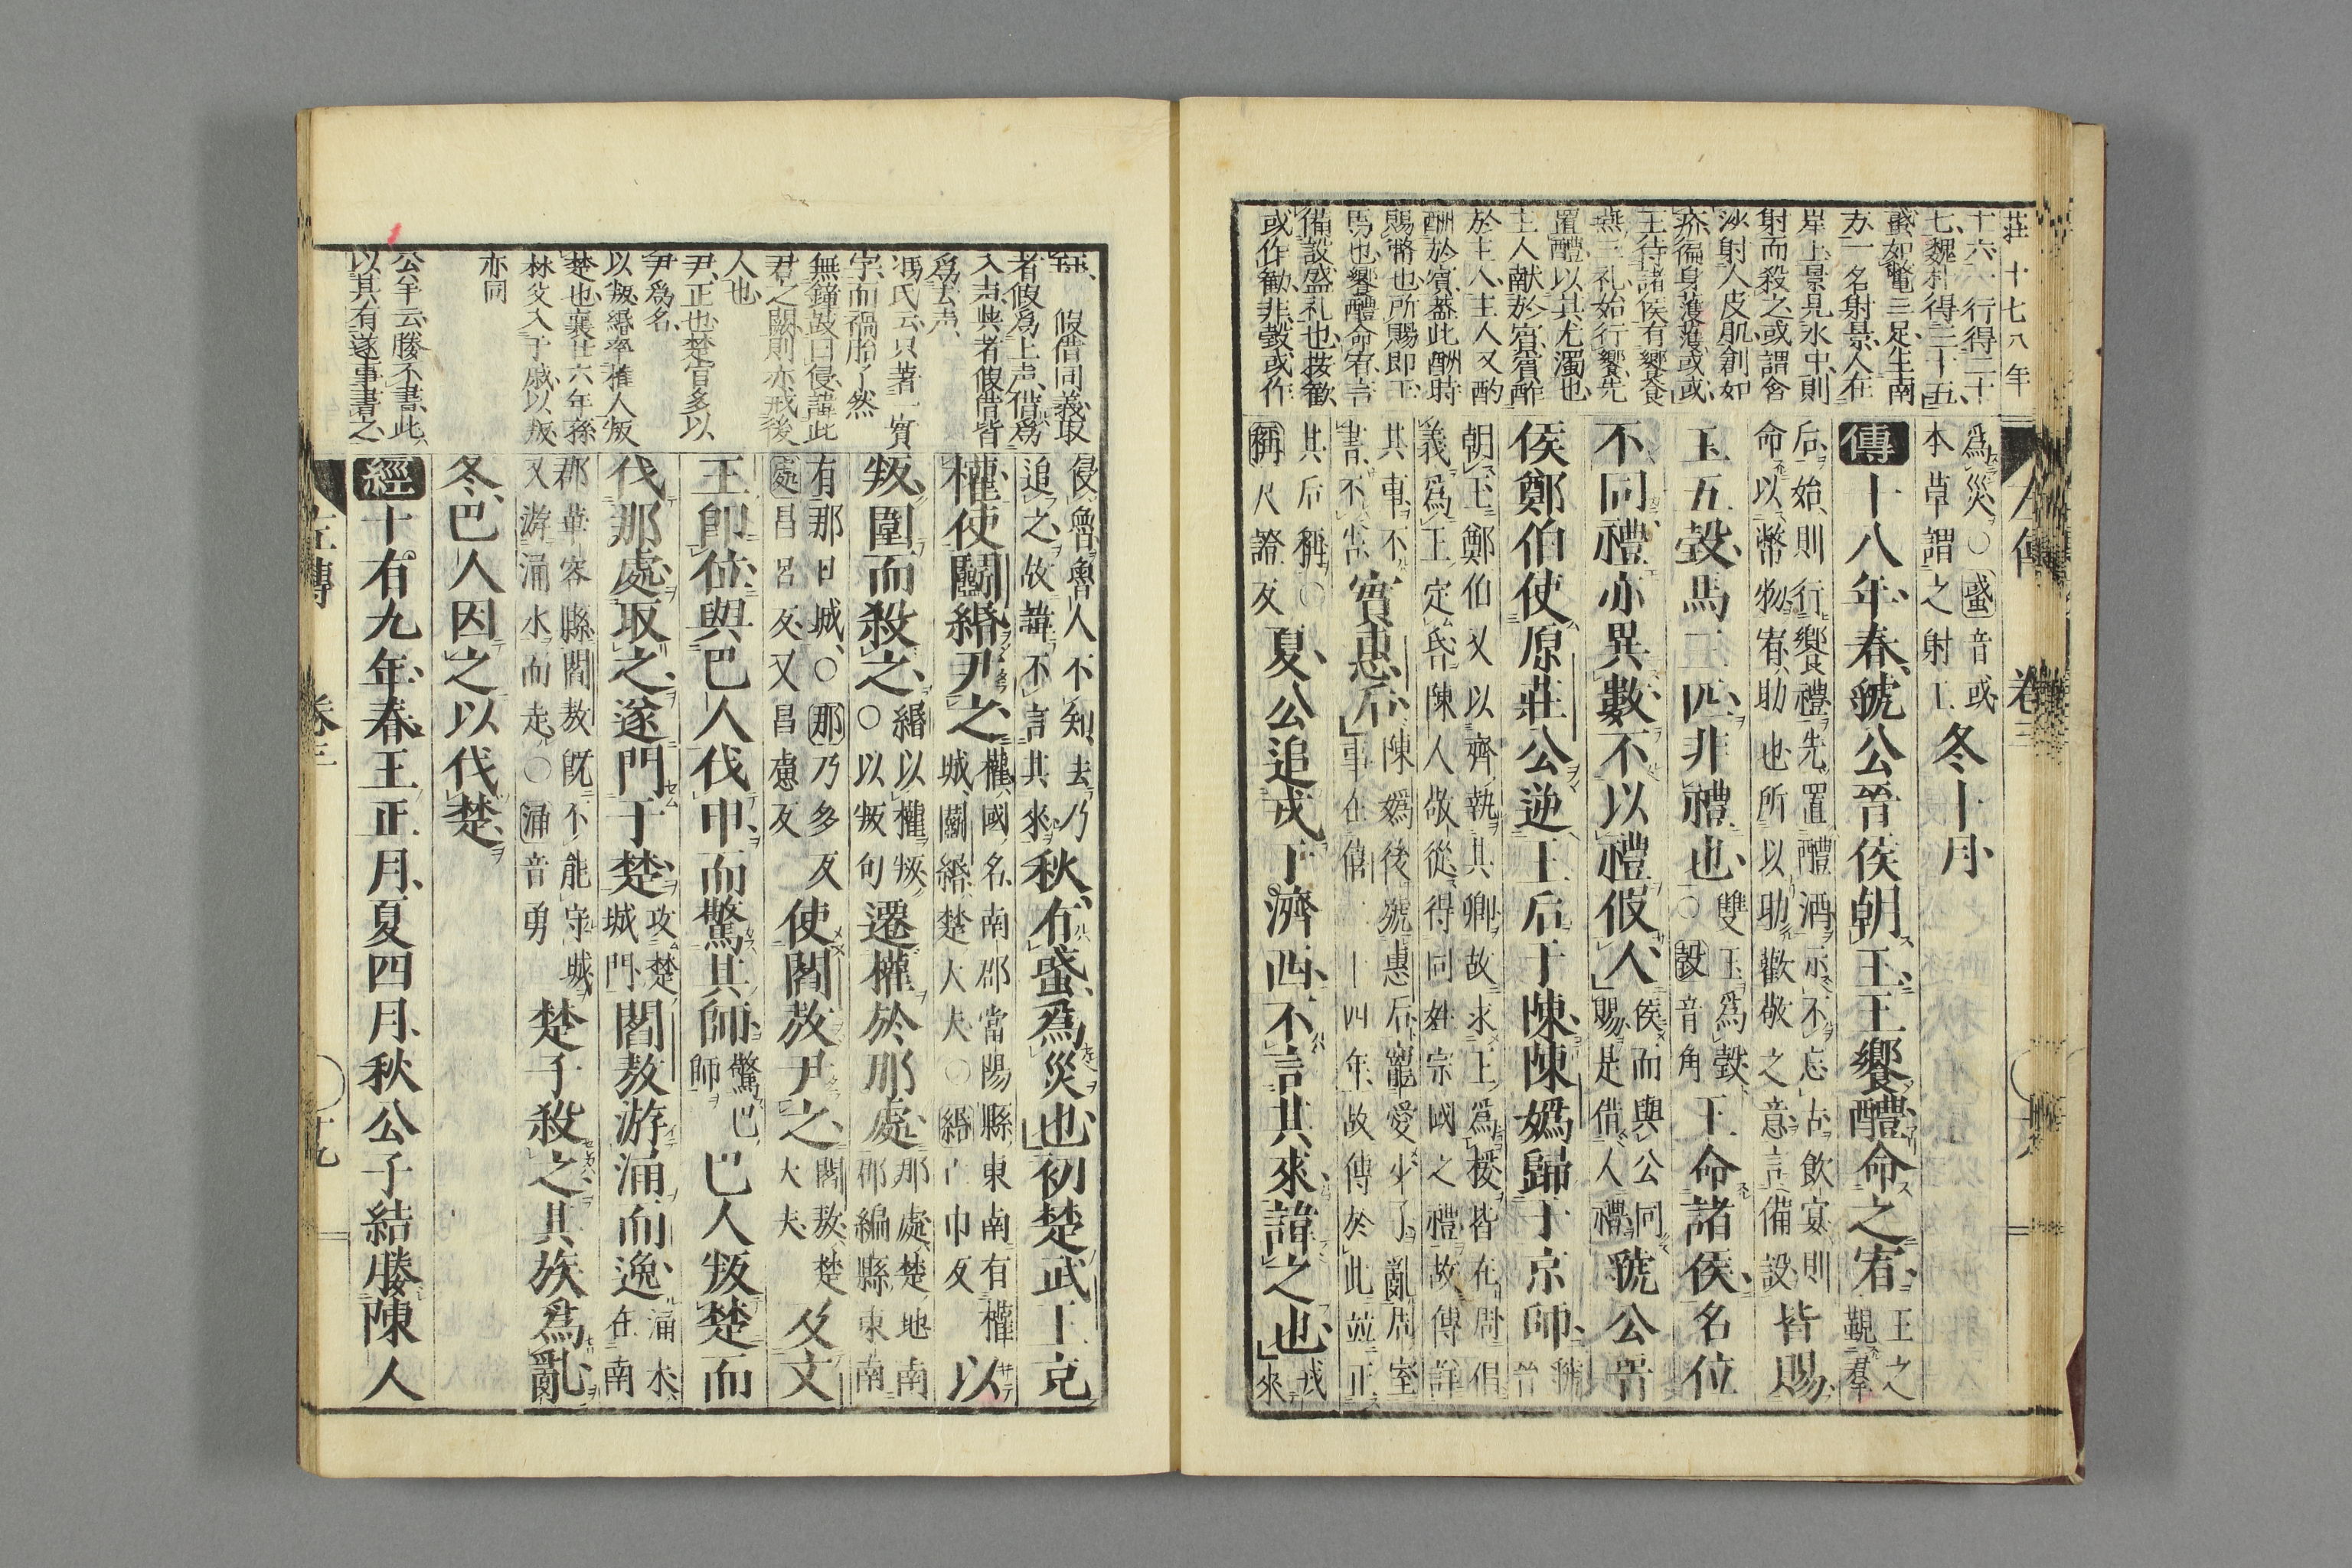 莊十七八年
十六一行得二十
七魏朴得三十五
蜮如鼈三足生南
方一名射景人在
岸上景見水中則
射而殺之或謂含
沙射人皮肌創如
疥徧身
王待諸侯有饗食
燕三礼始行饗先
置醴以其尤濁也
主人献於賓賓酢
於主人主人又酌
酬於賓蓋此酬時
賜幣也所賜即玉
馬也饗醴命宥言
備設盛礼也按歡
或作勸非瑴或作
爲災○蜮音或
本草謂之射工
冬十月
傳十八年春虢公晉侯朝王王饗醴命之宥
王之覲羣
后始則行饗禮先置醴酒示不忘古飲宴則
命以幣物宥助也所以助歡敬之意言備設
皆賜
玉五瑴馬三匹非禮也
雙玉爲瑴
○瑴音角
王命諸侯名位
不同禮亦異數不以禮假人
侯而與公同
賜是借人禮
虢公晉
侯鄭伯使原莊公逆王后于陳陳嬀歸于京師
虢晉
朝王鄭伯又以齊執其卿故求王爲援皆在周倡
義爲王定昏陳人敬從得同姓宗國之禮故傳詳
其事不書不告
實惠后
陳嬀後號惠后寵愛少子亂周室
事在僖二十四年故傳於此並正
其后稱○
稱尺證反
夏公追戎于濟西不言其來諱之也
戎來
鈺
假借同義取
者假爲上声借爲
入声與者假借皆
爲去声
馮氏云只著一實
字而禍胎了然
無鐘鼓曰侵諱此
君之闕則亦戒後
人也
尹正也楚官多以
尹爲名
以叛緡率權人叛
楚也襄廿六年孫
林父入于戚以叛
亦同
公羊云媵不書此
以其有遂事書之
侵魯魯人不知去乃
追之故諱不言其來
秋有蜮爲災也初楚武王克
權使鬬緡尹之
權國名南郡當陽縣東南有權
城鬬緡楚大夫○緡亡巾反
以
叛圍而殺之
緡以權叛
○以叛句
遷權於那處
那處楚地南
郡編縣東南
有那口城○那乃多反
處昌呂反又昌慮反
使閻敖尹之
閻敖楚
大夫
及文
王即位與巴人伐申而驚其師
驚巴
師
巴人叛楚而
伐那處取之遂門于楚
攻楚
城門
閻敖游涌而逸
涌水
在南
郡華容縣閻敖既不能守城
又游涌水而走○涌音勇
楚子殺之其族爲亂
冬巴人因之以伐楚
經十有九年春王正月夏四月秋公子結媵陳人
左傳
卷三
十九